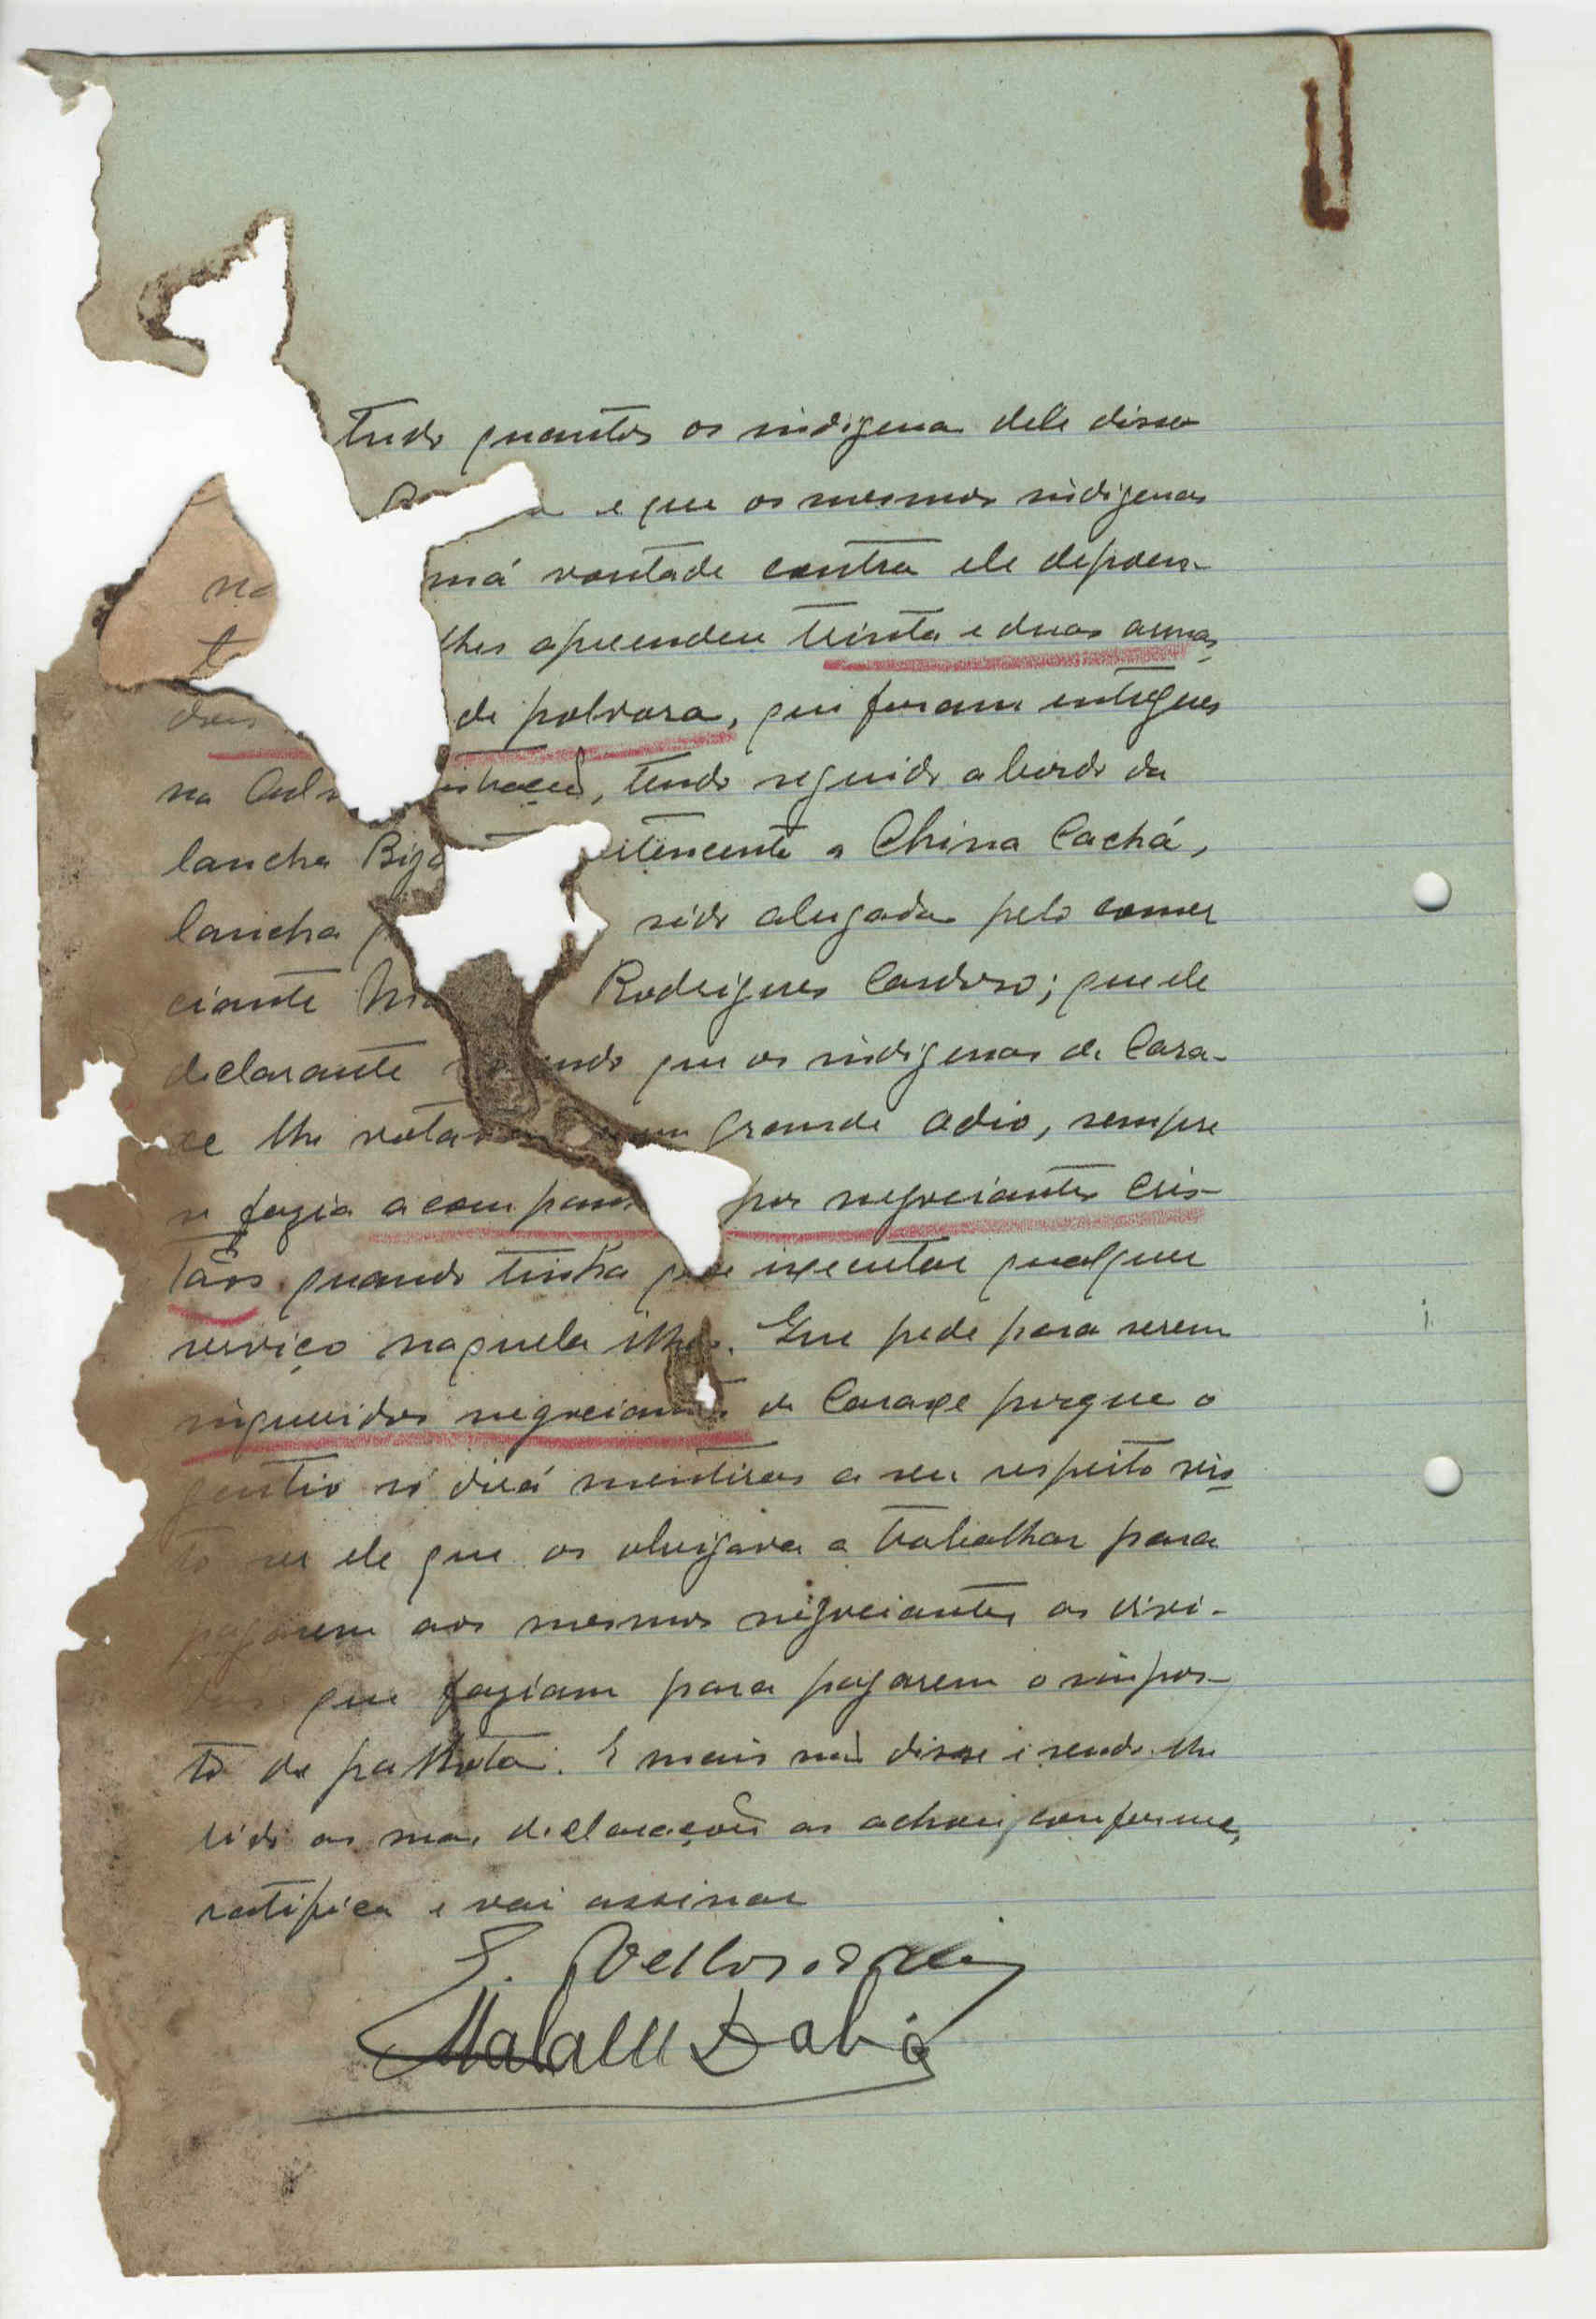 tudo quantos os indigena dele disse
e que os mesmos indigenas
má vontade contra ele depoem
no lhes apreendeu trinta e duas armas,
t
dois de polvora, que foram entregues
na Adm nistração, tendo seguido a bordo da
lancha Bija rtencente a China Cachá,
lancha sido alugada pelo comer
ciante Ma Rodrigues Cardoso; que ele
declarante endo que os indigenas de Cara-
xe lhe votavam um grande odio, sempre
se fazia acompanh por negociantes cris-
tãos quando tinha que executar qualquer
serviço naquela ilha. Que pede para serem
inqueridos negociantes de Caraxe porque o
gentio só dirá mentiras a seu respeito vis
to ser ele que os obrigava a trabalhar para
pagarem aos mesmos negociantes as divi-
das que faziam para pagarem o impos-
to de palhota. E mais não disse e sendo-lhe
lido as suas declarações as achou conforme,
ratifica e vai assinar